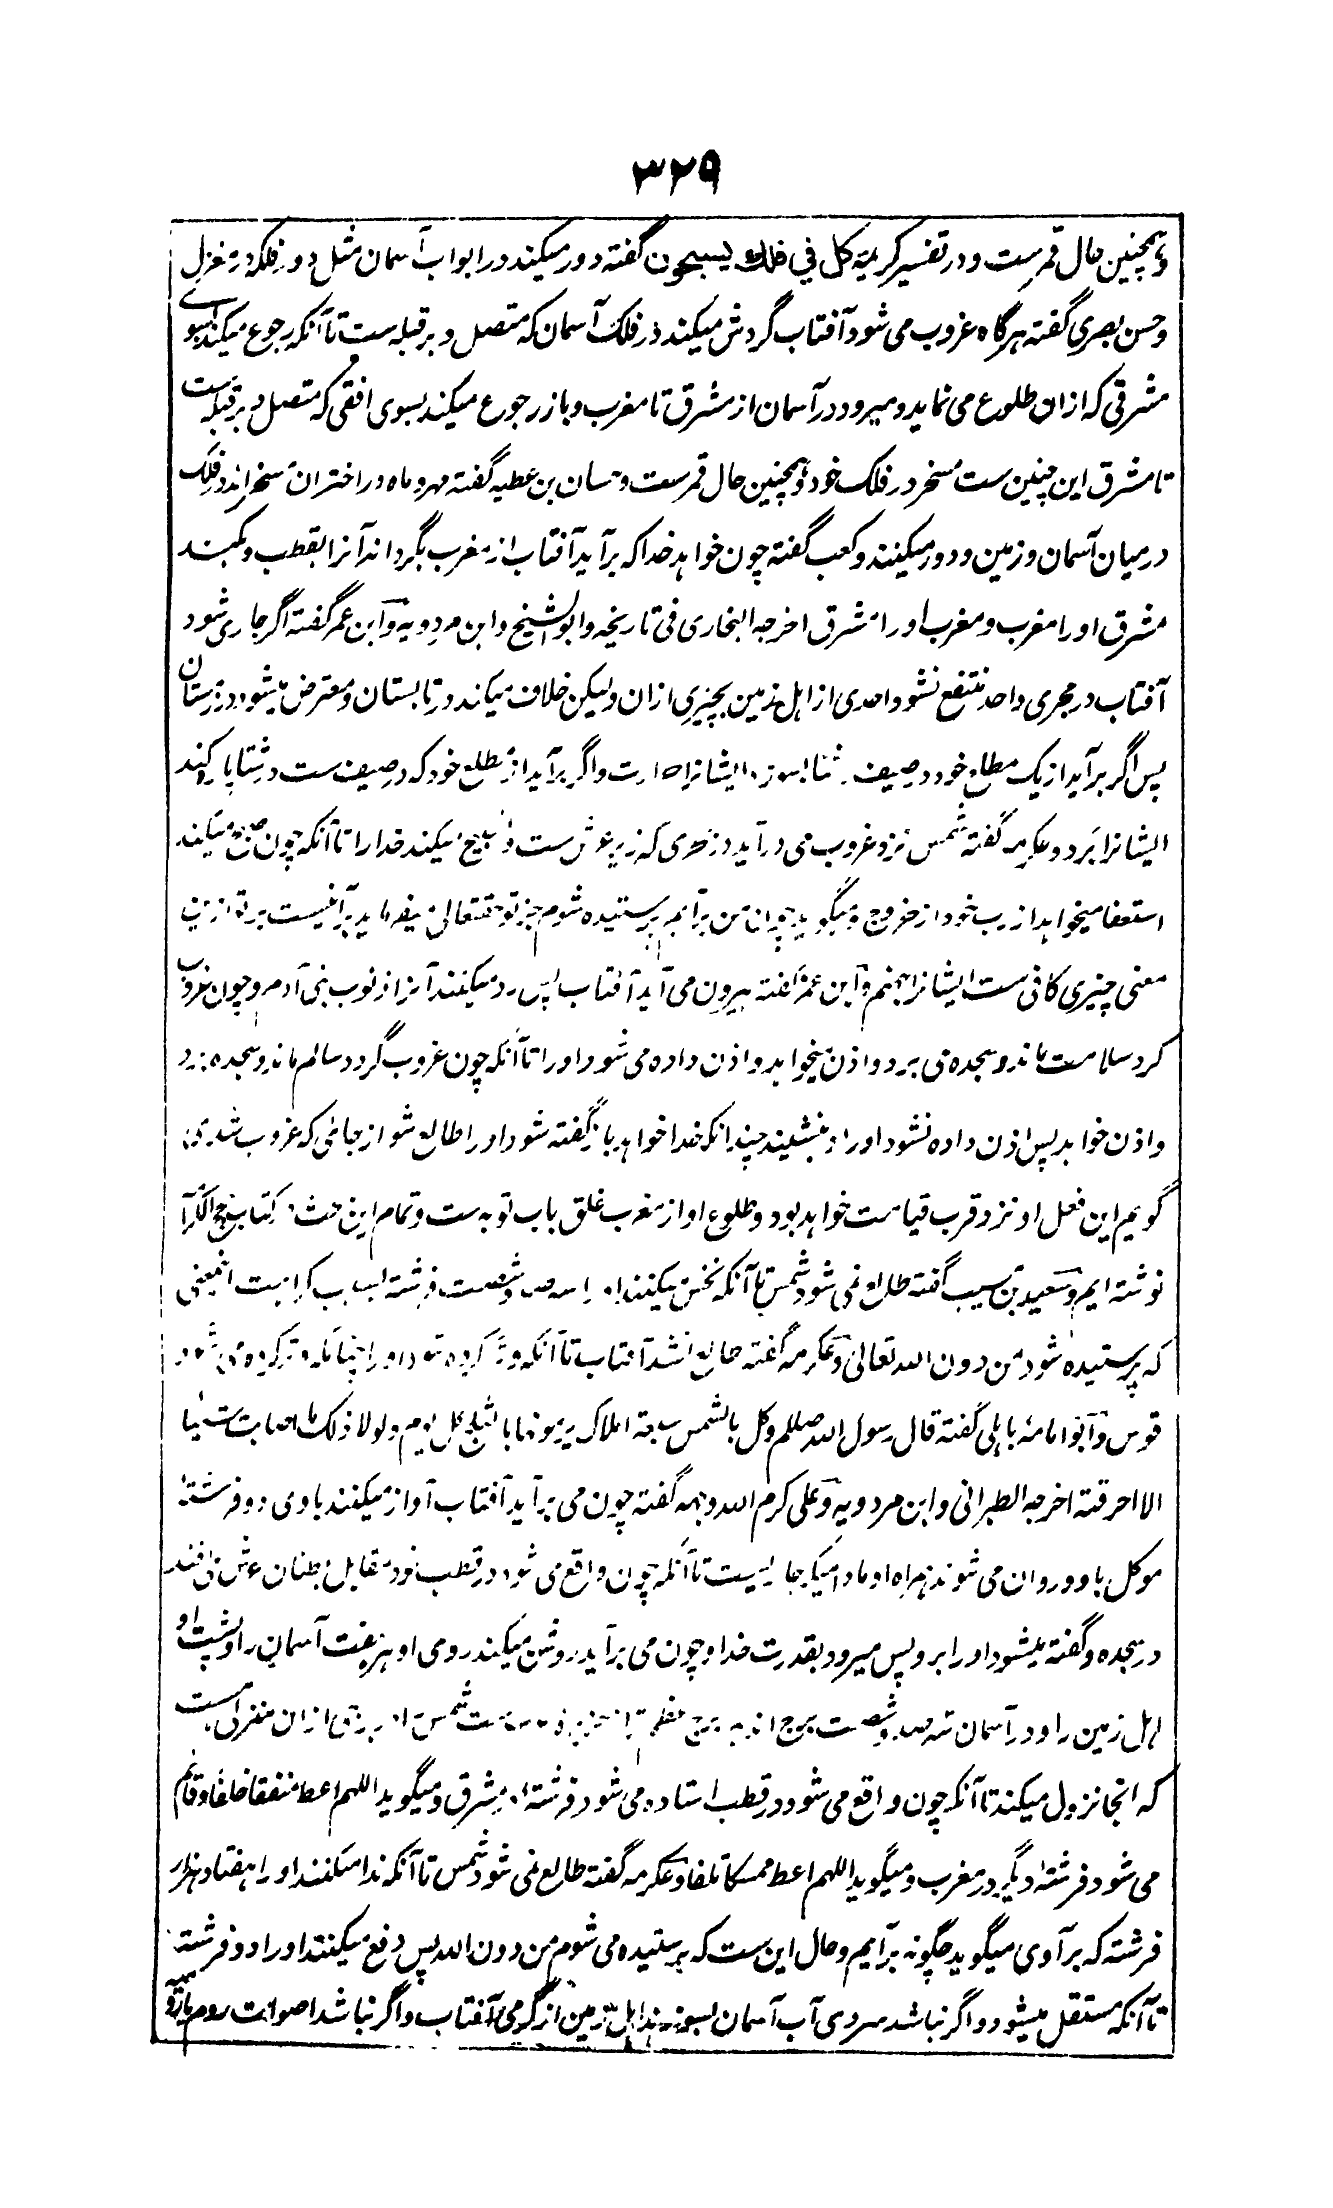 ۳۲۹
وهمچنین حال قمرست و در تفسیر کریمهٔ کل فی فلک یسبحون گفته دور میکند در ابواب آسمان مثل دور فلکه در مغزل
و حسن بصری گفته هرگاه غروب می شود آفتاب گردش میکند در فلک آسمان که متصل دبر قبله ست تا آنکه رجوع میکند بسوی
مشرقی که ازان طلوع می نماید و میرود در آسمان از مشرق تا مغرب و باز رجوع میکند بسوی افقی که متصل دبر قبله ست
تا مشرق این چنین ست مسخر در فلک خود وهمچنین حال قمرست و حسان بن عطیه گفته مهر و ماه و اختران مسخر اند در فلک
درمیان آسمان و زمین و دور میکنند و کعب گفته چون خواهد خدا که برآید آفتاب از مغرب بگرداند آنرا بقطب و بکند
مشرق او را مغرب و مغرب او را مشرق اخرجه البخاری فی تاریخه وابوالشیخ وابن مردویه وابن عمر گفته اگر جاری شود
آفتاب در مجری واحد منتفع نشود احدی از اهل زمین بچیزی ازان ولیکن خلاف میکند در تابستان و معترض میشود در زمستان
پس اگر برآید از یک مطلع خود در صیف ایشانرا حرارت و اگر برآید از مطلع خود که در صیف ست در شتا پاره کند
ایشانرا برد و عکرمه گفته شمس نزد غروب می درآید در بحری که زیر عرش ست و تسبیح میکند خدا را تا آنکه چون صبح میکند
استعفا میخواهد از رب خود از خروج و میگوید چون من برآیم پرستیده شوم جز تو حقتعالی میفرماید برآ نیست بر تو ازین
معنی چیزی کافی ست ایشانرا جهنم وابن عمر گفته بیرون می آید آفتاب پس رد میکنند آنرا ذنوب بنی آدم و چون غروب
کرد سلامت ماند و سجده می برد و اذن میخواهد و اذن داده می شود او را تا آنکه چون غروب گردد سالم ماند و سجده برد
و اذن خواهد پس اذن داده نشود او را و بنشیند چندانکه خدا خواهد باز گفته شود او را طالع شو از جائی که غروب شدی
گویم این فعل او نزد قرب قیامت خواهد بود و طلوع او از مغرب غلق باب توبه ست و تمام این بحث در کتاب حجج الکرامه
نوشته ایم و سعید بن مسیب گفته طالع نمی شود شمس تا آنکه نخس میکنند او را سه صد و شصت فرشته بسبب کراهت اینمعنی
که پرستیده شود من دون الله تعالی و عکرمه گفته طالع نشد آفتاب تا آنکه وتر کرده شود او را چنانکه وتر کرده می شود
قوس وابو امامهٔ باهلی گفته قال رسول الله صللم وکل بالشمس سبعة املاک یرمونها بالثلج کل یوم ولولا ذلک ما اصابت شیئا
الا احرقته اخرجه الطبرانی وابن مردویه وعلی کرم الله وجهه گفته چون می برآید آفتاب آواز میکنند باوی دو فرشته
موکل باو و روان می شوند همراه او مادامیکه جاریست تا آنکه چون واقع می شود در قطب خود مقابل بطنان عرش می افتد
در سجده و گفته میشود او را برو پس میرود بقدرت خدا و چون می برآید روشن میکند روی او هر هفت آسمان را و پشت او
اهل زمین را و در آسمان سه صد و شصت برج اند هر برج شمس را هر روزی ازان منزلی ست
که آنجا نزول میکند تا آنکه چون واقع می شود در قطب استاده می شود فرشتهٔ در مشرق و میگوید اللهم اعط منفقا خلفا و قائم
می شود فرشتهٔ دیگر در مغرب و میگوید اللهم اعط ممسکا تلفا و عکرمه گفته طالع نمی شود شمس تا آنکه ندا میکنند او را هفتاد هزار
فرشته که برآ وی میگوید چگونه برآیم و حال این ست که پرستیده می شوم من دون الله پس دفع میکنند او را دو فرشته
تا آنکه مستقل میشود و اگر نباشد سردی آب آسمان بسوزند اهل زمین از گرمی آفتاب و اگر نباشد اصوات روم بازو